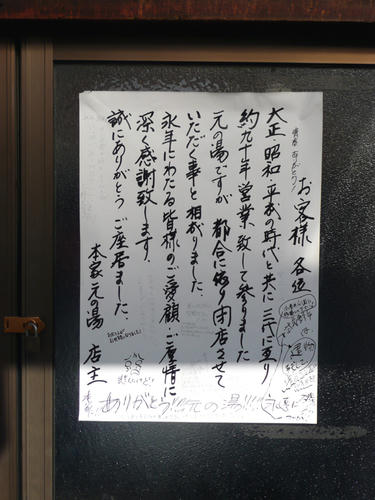 お客様 各位
大正 昭和・平成の時代と共に 三代に亘り
約九十年営業致して参りました
元の湯ですが 都合に依り閉店させて
いただく事と相成りました。
永年にわたる皆様のご愛顧・ご厚情に
深く感謝致します。
誠にありがとう ご座居ました。
本家 元の湯 店主
ありがとう!!元の湯!!!!